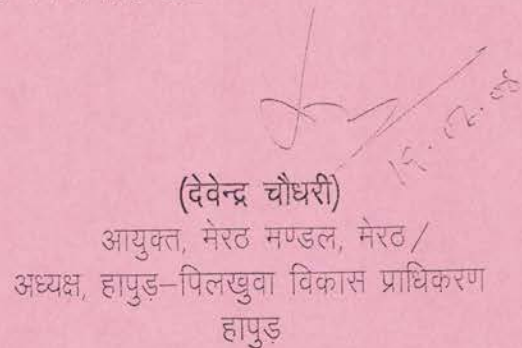 (देवेन्द्र चौधरी)
आयुक्त, मेरठ मण्डल, मेरठ/
अध्यक्ष, हापुड़–पिलखुवा विकास प्राधिकरण
हापुड़